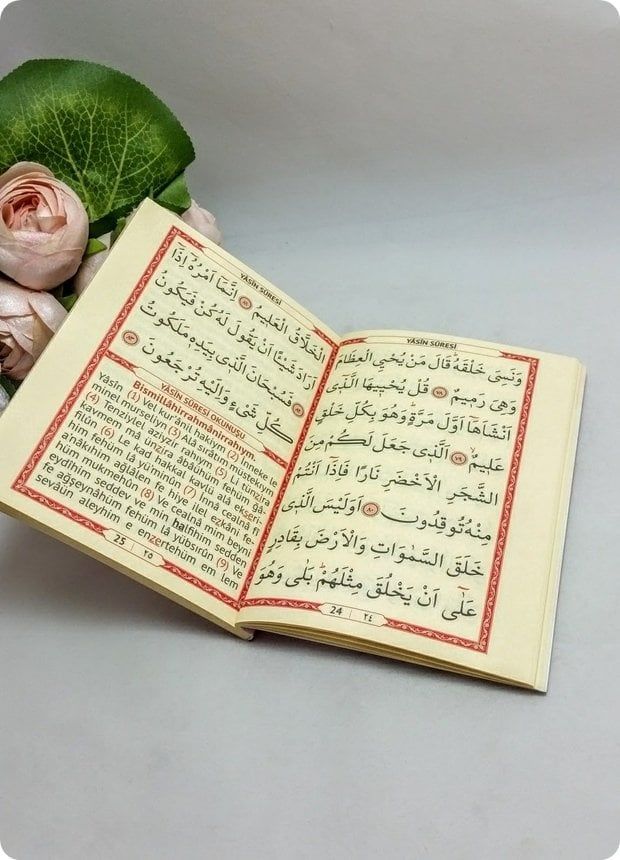 YÂSÎN SÛRESİ
وَنَسِىَ خَلْقَهُ قَالَ مَنْ يُحْيِى الْعِظَامَ
وَهِىَ رَمِيمٌ ﴿٧٨﴾ قُلْ يُحْيِيهَا الَّذٖى
اَنْشَاَهَا اَوَّلَ مَرَّةٍ وَهُوَ بِكُلِّ خَلْقٍ
عَلِيمٌ ﴿٧٩﴾ اَلَّذٖى جَعَلَ لَكُمْ مِنَ
الشَّجَرِ الْاَخْضَرِ نَارًا فَاِذَا اَنْتُمْ
مِنْهُ تُوقِدُونَ ﴿٨٠﴾ اَوَلَيْسَ الَّذٖى
خَلَقَ السَّمٰوَاتِ وَالْاَرْضَ بِقَادِرٍ
عَلٰى اَنْ يَخْلُقَ مِثْلَهُمْ بَلٰى وَهُوَ
24 | ٢٤
YÂSÎN SÛRESİ
الْخَلَّاقُ الْعَلِيمُ ﴿٨١﴾ اِنَّمَا اَمْرُهُ اِذَا
اَرَادَ شَيْئًا اَنْ يَقُولَ لَهُ كُنْ فَيَكُونُ
﴿٨٢﴾ فَسُبْحَانَ الَّذٖى بِيَدِهٖ مَلَكُوتُ
كُلِّ شَىْءٍ وَاِلَيْهِ تُرْجَعُونَ ﴿٨٣﴾
YÂSÎN SÛRESİ OKUNUŞU
Bismillâhirrahmânirrahıym.
Yâsîn (1) Vel kur'ânil hakîym (2) İnneke le
minel murselîyn (3) Alâ sırâtım müstekıym
(4) Tenzîylel azîyzir rahıym (5) Li tünzira
kavmem mâ ünzira âbâühüm fehüm ğâ-
filûn (6) Le kad hakkal kavlü alâ ekseri-
him fehüm lâ yü'minûn (7) İnnâ cealnâ fî
a'nâkıhim ağlâlen fe hiye ilel ezkani fe-
hüm mukmehûn (8) Ve cealnâ mim beyni
eydîhim sedden ve min halfihim sedden
fe ağşeynâhüm fehüm lâ yübsırûn (9) Ve
sevâün aleyhim e enzertehüm em lem
25 | ٢٥